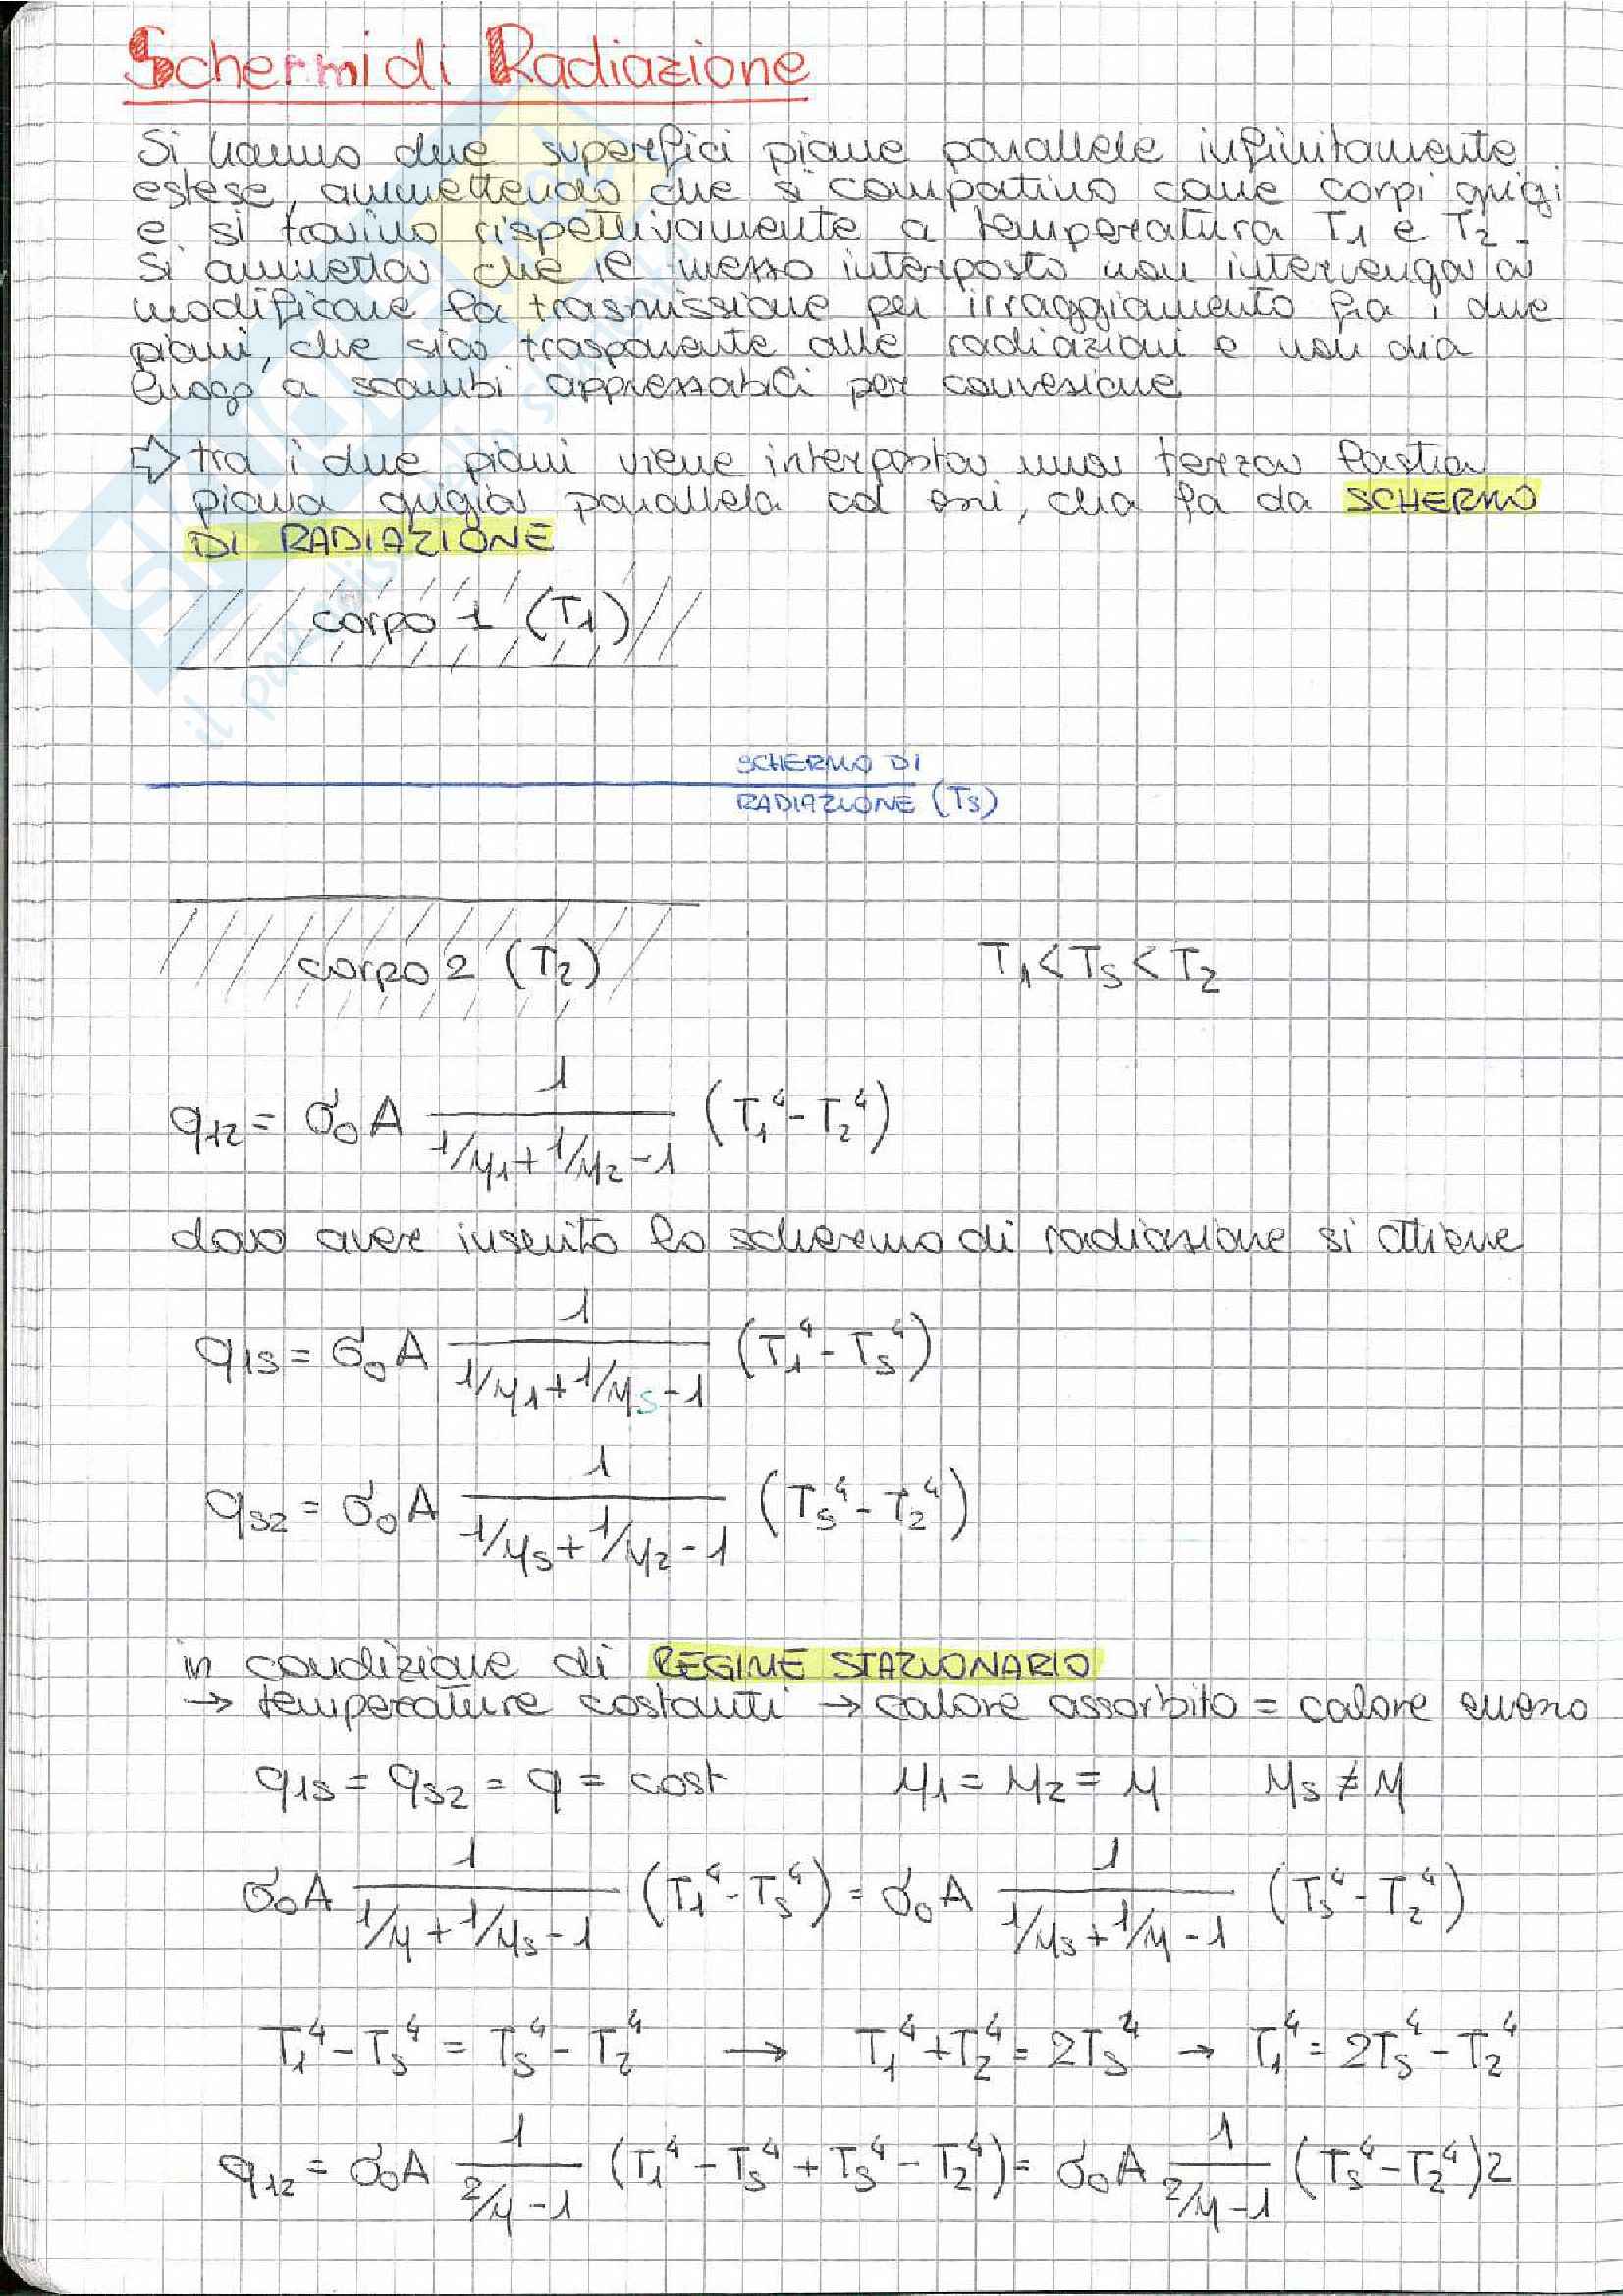 Schermi di Radiazione
Si hanno due superfici piane parallele infinitamente
estese, ammettendo che si compatino come corpi grigi
e si trovino rispettivamente a temperatura T1 e T2.
Si ammetta che il mezzo interposto non intervenga a
modificare la trasmissione per irraggiamento fra i due
piani, che sia trasparente alle radiazioni e non dia
luogo a scambi apprezzabili per convezione
⇒ tra i due piani viene interposta una terza lastra
piana grigia parallela ad essi, cha fa da SCHERMO
DI RADIAZIONE
corpo 1 (T1)
SCHERMO DI
RADIAZIONE (Ts)
corpo 2 (T2)
T1 < Ts < T2
q12 = σ0 A 1 / (1/μ1 + 1/μ2 - 1) (T1⁴ - T2⁴)
dopo avere inserito lo schermo di radiazione si ottiene
q1s = σ0 A 1 / (1/μ1 + 1/μs - 1) (T1⁴ - Ts⁴)
qs2 = σ0 A 1 / (1/μs + 1/μ2 - 1) (Ts⁴ - T2⁴)
in condizione di REGIME STAZIONARIO
→ temperature costanti → calore assorbito = calore emesso
q1s = qs2 = q = cost μ1 = μ2 = μ μs ≠ μ
σ0 A 1 / (1/μ + 1/μs - 1) (T1⁴ - Ts⁴) = σ0 A 1 / (1/μs + 1/μ - 1) (Ts⁴ - T2⁴)
T1⁴ - Ts⁴ = Ts⁴ - T2⁴ → T1⁴ + T2⁴ = 2Ts⁴ → T1⁴ = 2Ts⁴ - T2⁴
q12 = σ0 A 1 / (2/μ - 1) (T1⁴ - Ts⁴ + Ts⁴ - T2⁴) = σ0 A 1 / (2/μ - 1) (Ts⁴ - T2⁴) 2